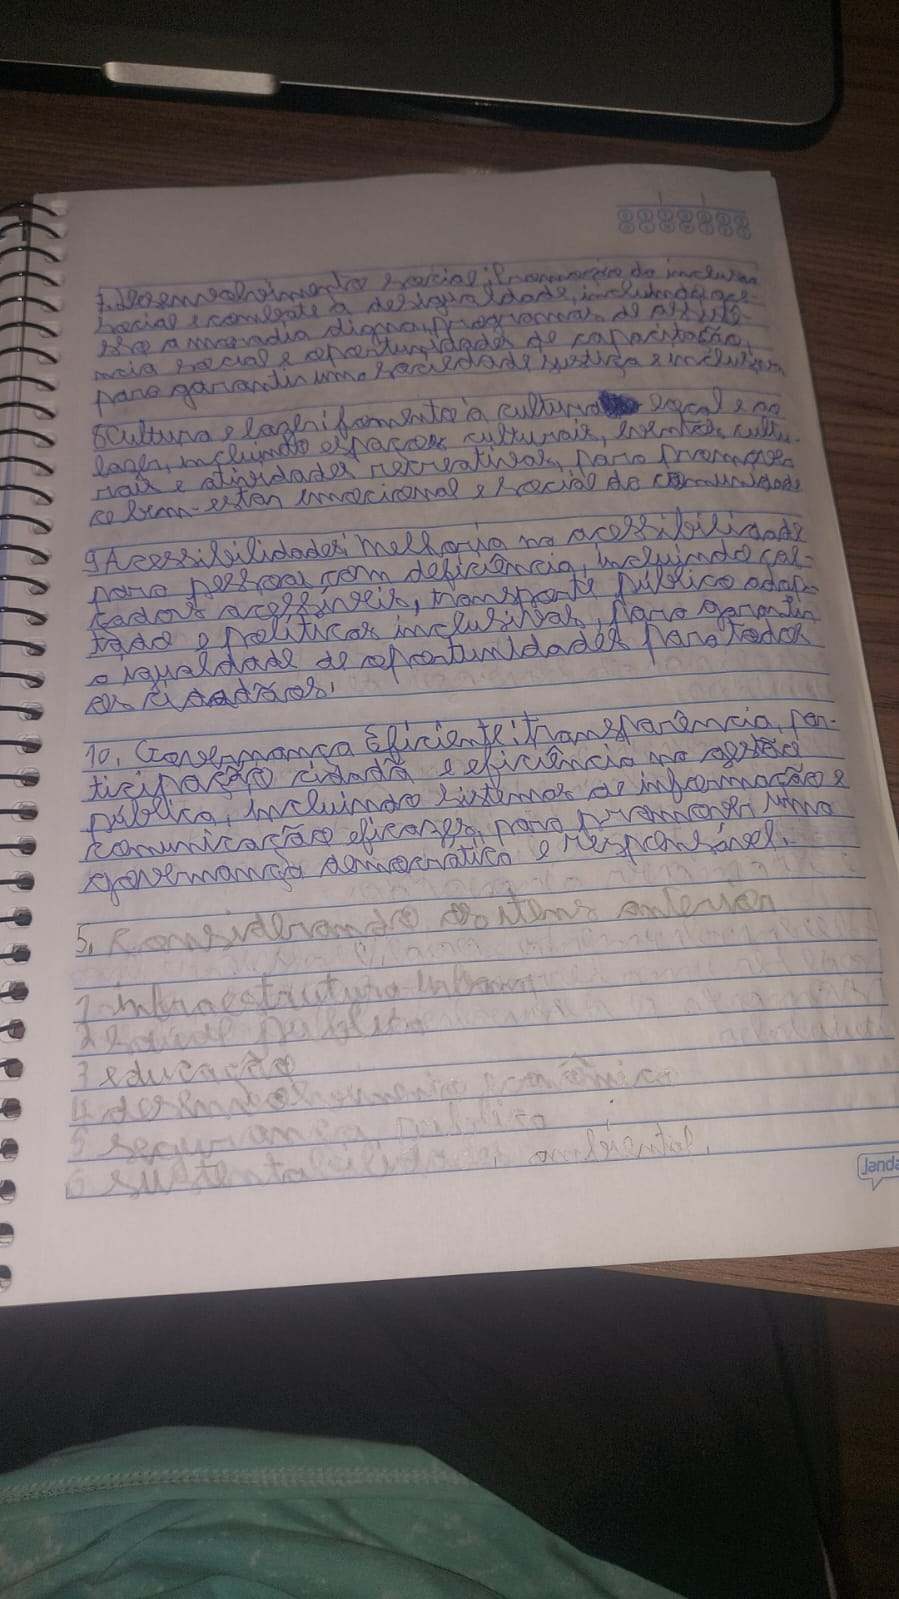 7. Desenvolvimento social: Promoção da inclusão
social e combate à desigualdade, incluindo aces-
sso a moradia digna, programas de assistê-
ncia social e oportunidades de capacitação,
para garantir uma sociedade justiça e inclusiva
8 Cultura e lazer: fomento à cultura local e ao
lazer, incluindo espaços culturais, eventos cultu-
rais e atividades recreativas, para promover
o bem-estar emocional e social da comunidade
9 Acessibilidades: Melhoria na acessibilidade
para pessoas com deficiência, incluindo cal-
çados acessíveis, transporte público adap-
tado e políticas inclusivas, para garantir
a igualdade de oportunidades para todos
os cidadãos.
10. Governança Eficiente: transparência, par-
ticipação cidadã e eficiência na gestão
pública, incluindo sistemas de informação e
comunicação eficazes, para promover uma
governança democrática e responsável.
5. Considerando os itens anterior
1 infraestrutura urbana
2 saúde pública
3 educação
4 desenvolvimento econômico
5 segurança pública
6 sustentabilidade ambiental.
Janda